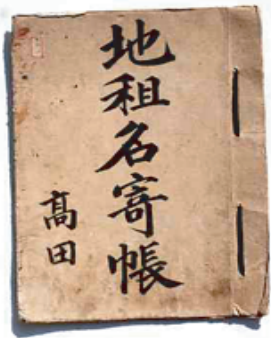 地租名寄帳
髙田